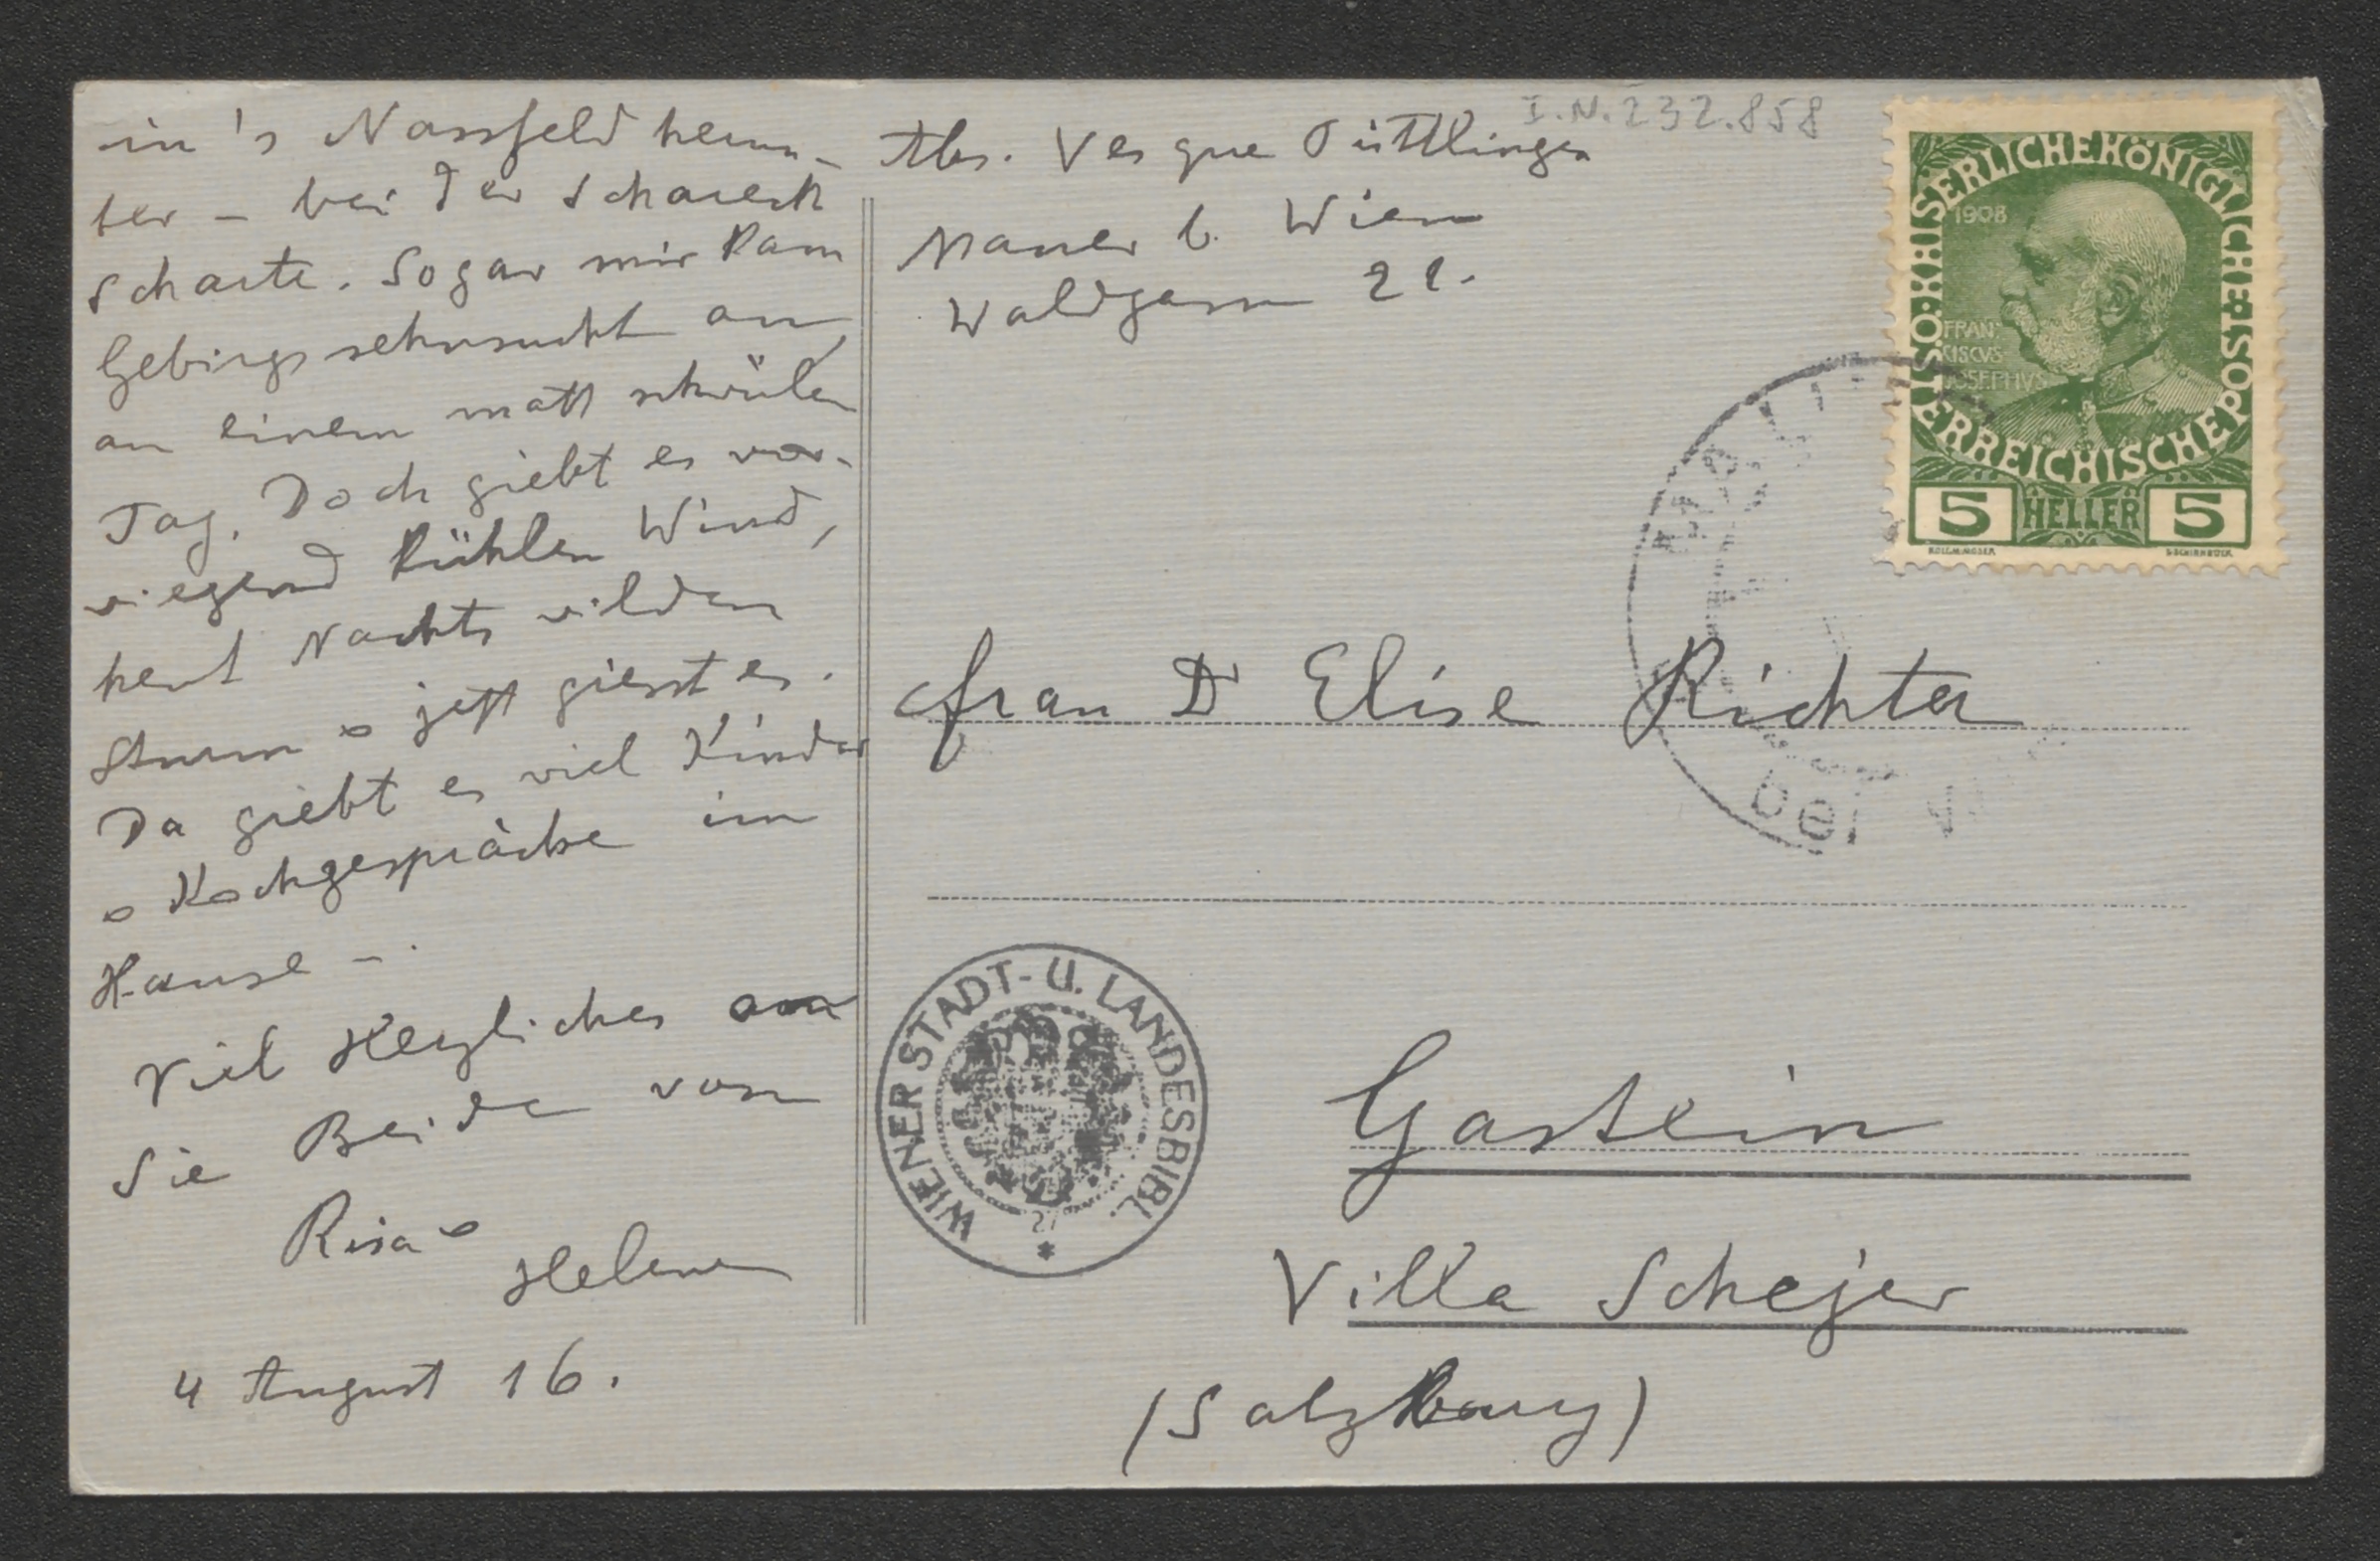 in's Nassfeld herun-
ter – bei der Schareck
Scharte. Sogar mir kam
Gebirgssehnsucht an
an einem matt schwülen
Tag. Doch giebt es vor-
wiegend kühlen Wind,
heut Nachts wilden
Sturm u jetzt giesst es.
Da giebt es viel Kinder
u Kochgespräche im
Hause –
Viel Herzliches an
Sie Beide von
Risa u
Helene
4 August 16.
I.N. 232.858
Abs. Vesque Püttlingen
Mauer b. Wien
Waldgasse 21.
ÖSTERREICHISCHE POST
KAISERLICHE KÖNIGLICHE
1908
FRAN
CISCVS
JOSEPHVS
5 HELLER 5
bei
Frau Dr Elise Richter
WIENER STADT- U. LANDESBIBL.
Gastein
Villa Schejer
(Salzburg)